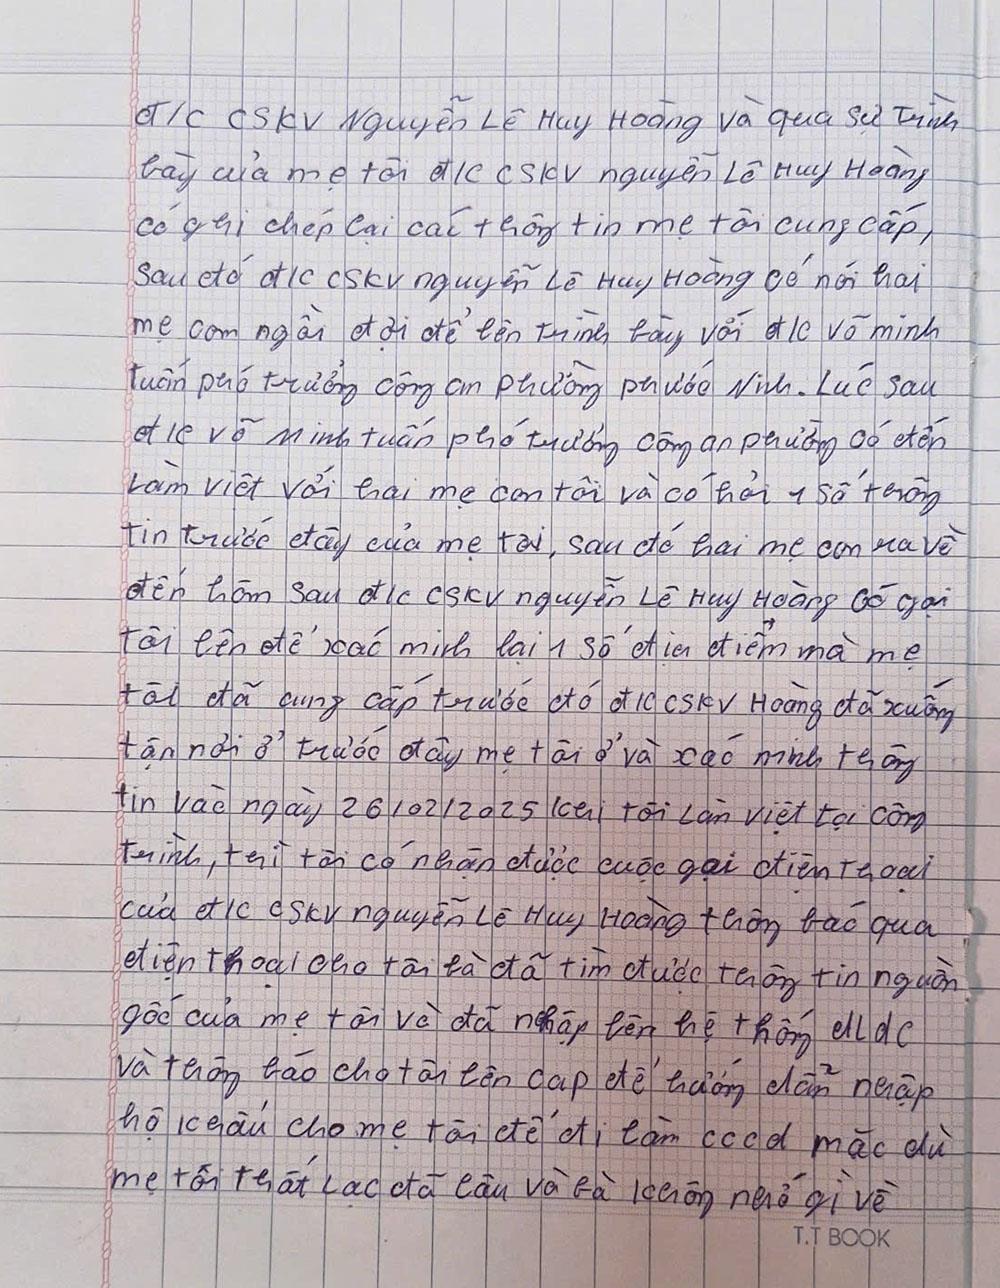 đ/c CSKV Nguyễn Lê Huy Hoàng và qua sự trình
bày của mẹ tôi đ/c CSKV nguyễn Lê Huy Hoàng
có ghi chép lại các thông tin mẹ tôi cung cấp,
sau đó đ/c CSKV nguyễn Lê Huy Hoàng có nói hai
mẹ con ngồi đợi để lên trình bày với đ/c võ minh
tuấn phó trưởng công an phường phước Ninh. Lúc sau
đ/c võ Minh tuấn phó trưởng công an phường có đến
Làm việt với hai mẹ con tôi và có hỏi 1 số thông
tin trước đây của mẹ tôi, sau đó hai mẹ con ra về
đến hôm sau đ/c CSKV nguyễn Lê Huy Hoàng có gọi
tôi lên để xác minh lại 1 số địa điểm mà mẹ
tôi đã cung cấp trước đó đ/c CSKV Hoàng đã xuống
tận nơi ở trước đây mẹ tôi ở và xác minh thông
tin vào ngày 26/02/2025 khi tôi Làm việt tại công
trình, thì tôi có nhận được cuộc gọi điện thoại
của đ/c CSKV nguyễn Lê Huy Hoàng thông báo qua
điện thoại cho tôi là đã tìm được thông tin nguồn
gốc của mẹ tôi và đã nhập lên hệ thống dLdc
và thông báo cho tôi lên cap để hướng dẫn nhập
hộ khẩu cho mẹ tôi để đi làm cccd mặc dù
mẹ tôi thất Lạc đã lâu và bà không nhớ gì về
T.T BOOK